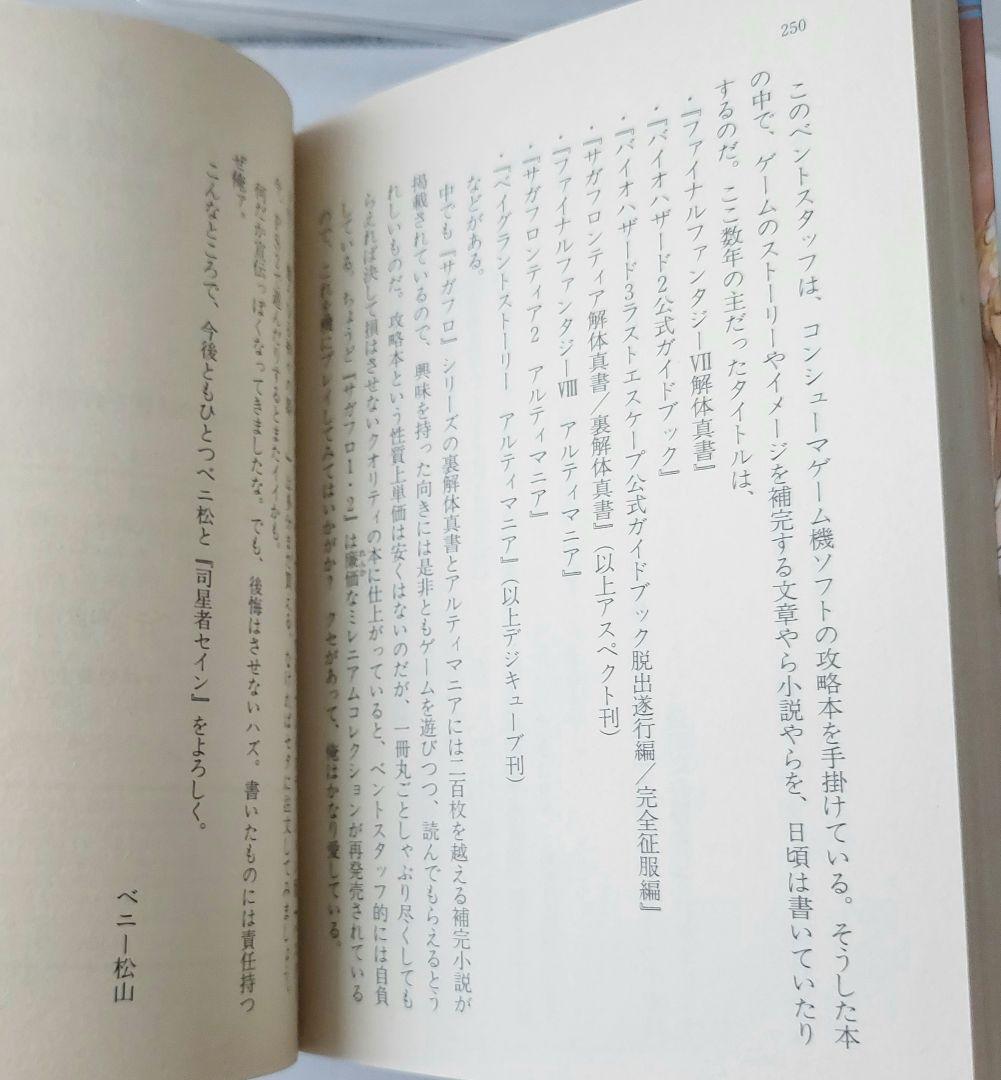 250
このベントスタッフは、コンシューマゲーム機ソフトの攻略本を手掛けている。そうした本
の中で、ゲームのストーリーやイメージを補完する文章やら小説やらを、日頃は書いていたり
するのだ。ここ数年の主だったタイトルは、
・『ファイナルファンタジーⅦ解体真書』
・『バイオハザード2公式ガイドブック』
・『バイオハザード3ラストエスケープ公式ガイドブック脱出遂行編/完全征服編』
・『サガフロンティア解体真書/裏解体真書』(以上アスペクト刊)
・『ファイナルファンタジーⅧ アルティマニア』
・『サガフロンティア2 アルティマニア』
・『ベイグラントストーリー アルティマニア』(以上デジキューブ刊)
などがある。
中でも『サガフロ』シリーズの裏解体真書とアルティマニアには二百枚を越える補完小説が
掲載されているので、興味を持った向きには是非ともゲームを遊びつつ、読んでもらえるとう
れしいものだ。攻略本という性質上単価は安くはないのだが、一冊丸ごとしゃぶり尽くしても
らえれば決して損はさせないクオリティの本に仕上がっていると、ベントスタッフ的には自負
している。ちょうど『サガフロ1・2』は廉価なミレニアムコレクションが再発売されている
ので、これを機にプレイしてみてはいかがか? クセがあって、俺はかなり愛している。
何だか宣伝っぽくなってきましたな。でも、後悔はさせないハズ。書いたものには責任持つ
ぜ俺ァ。
こんなところで、今後ともひとつベニ松と『司星者セイン』をよろしく。
ベニー松山